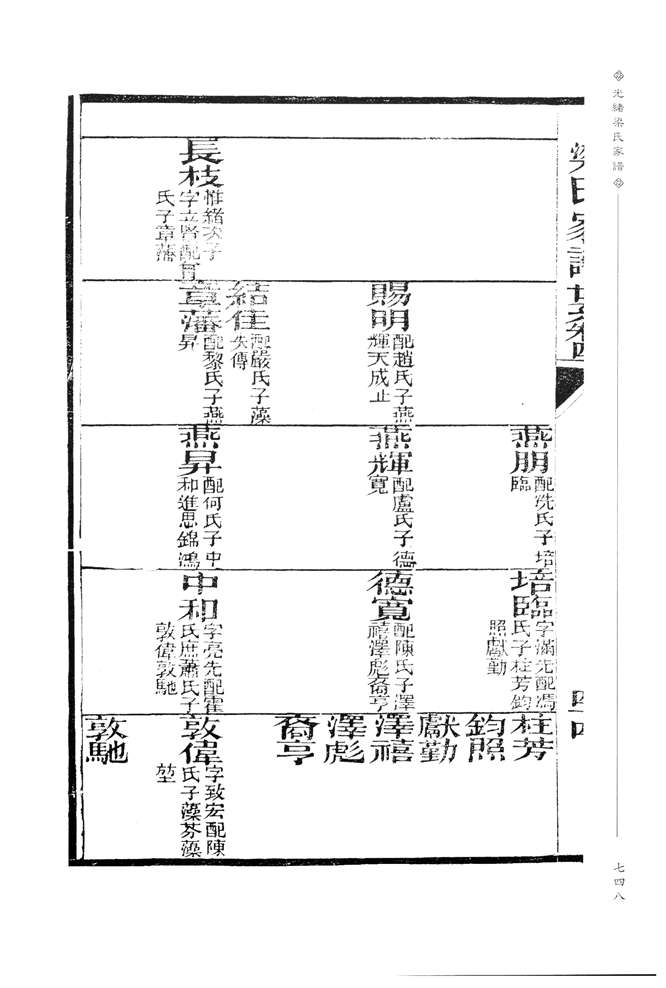 光緒梁氏家譜
梁氏家譜
四四
七四八
長枝
惟緒次子
字立賢配
氏子章藩
賜明
配趙氏子燕
輝天成止
結隹
配嚴氏子藻
失傳
章藩
配黎氏子燕
昇
燕朋
配冼氏子培
臨
燕輝
配盧氏子德
寬
燕昇
配何氏子中
和進思錦鴻
培臨
字滿先配馮
氏子柱芳鈞
照獻勤
德寬
配陳氏子澤
禧澤彪裔亨
中和
字亮先配霍
氏庶蕭氏子
敦偉敦馳
柱芳
鈞照
獻勤
澤禧
澤彪
裔亨
敦偉
字致宏配陳
氏子藻芬藻
堃
敦馳